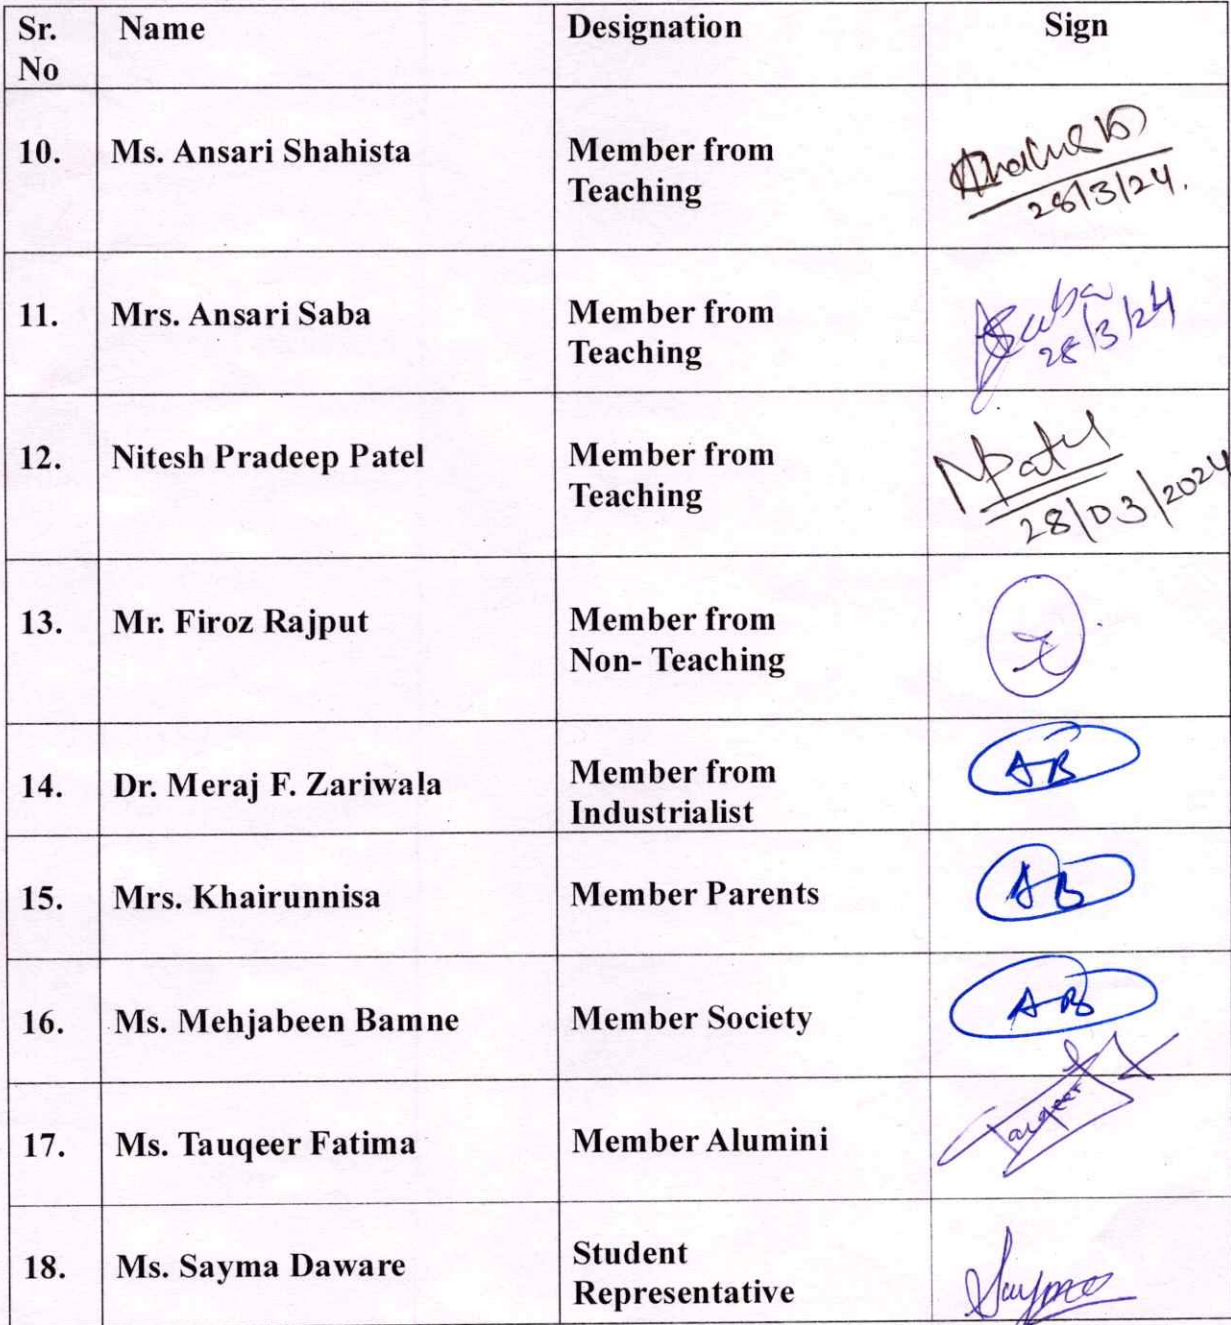 Sr. No Name Designation Sign
10. Ms. Ansari Shahista Member from
Teaching
28/3/24.
11. Mrs. Ansari Saba Member from Saba
Teaching 28/3/24
12. Nitesh Pradeep Patel Member from NPatel
Teaching 28/03/2024
13. Mr. Firoz Rajput Member from
Non- Teaching
14. Dr. Meraj F. Zariwala Member from AB
Industrialist
15. Mrs. Khairunnisa Member Parents AB
16. Ms. Mehjabeen Bamne Member Society AB
17. Ms. Tauqeer Fatima Member Alumini Tauqeer
18. Ms. Sayma Daware Student
Representative Sayma